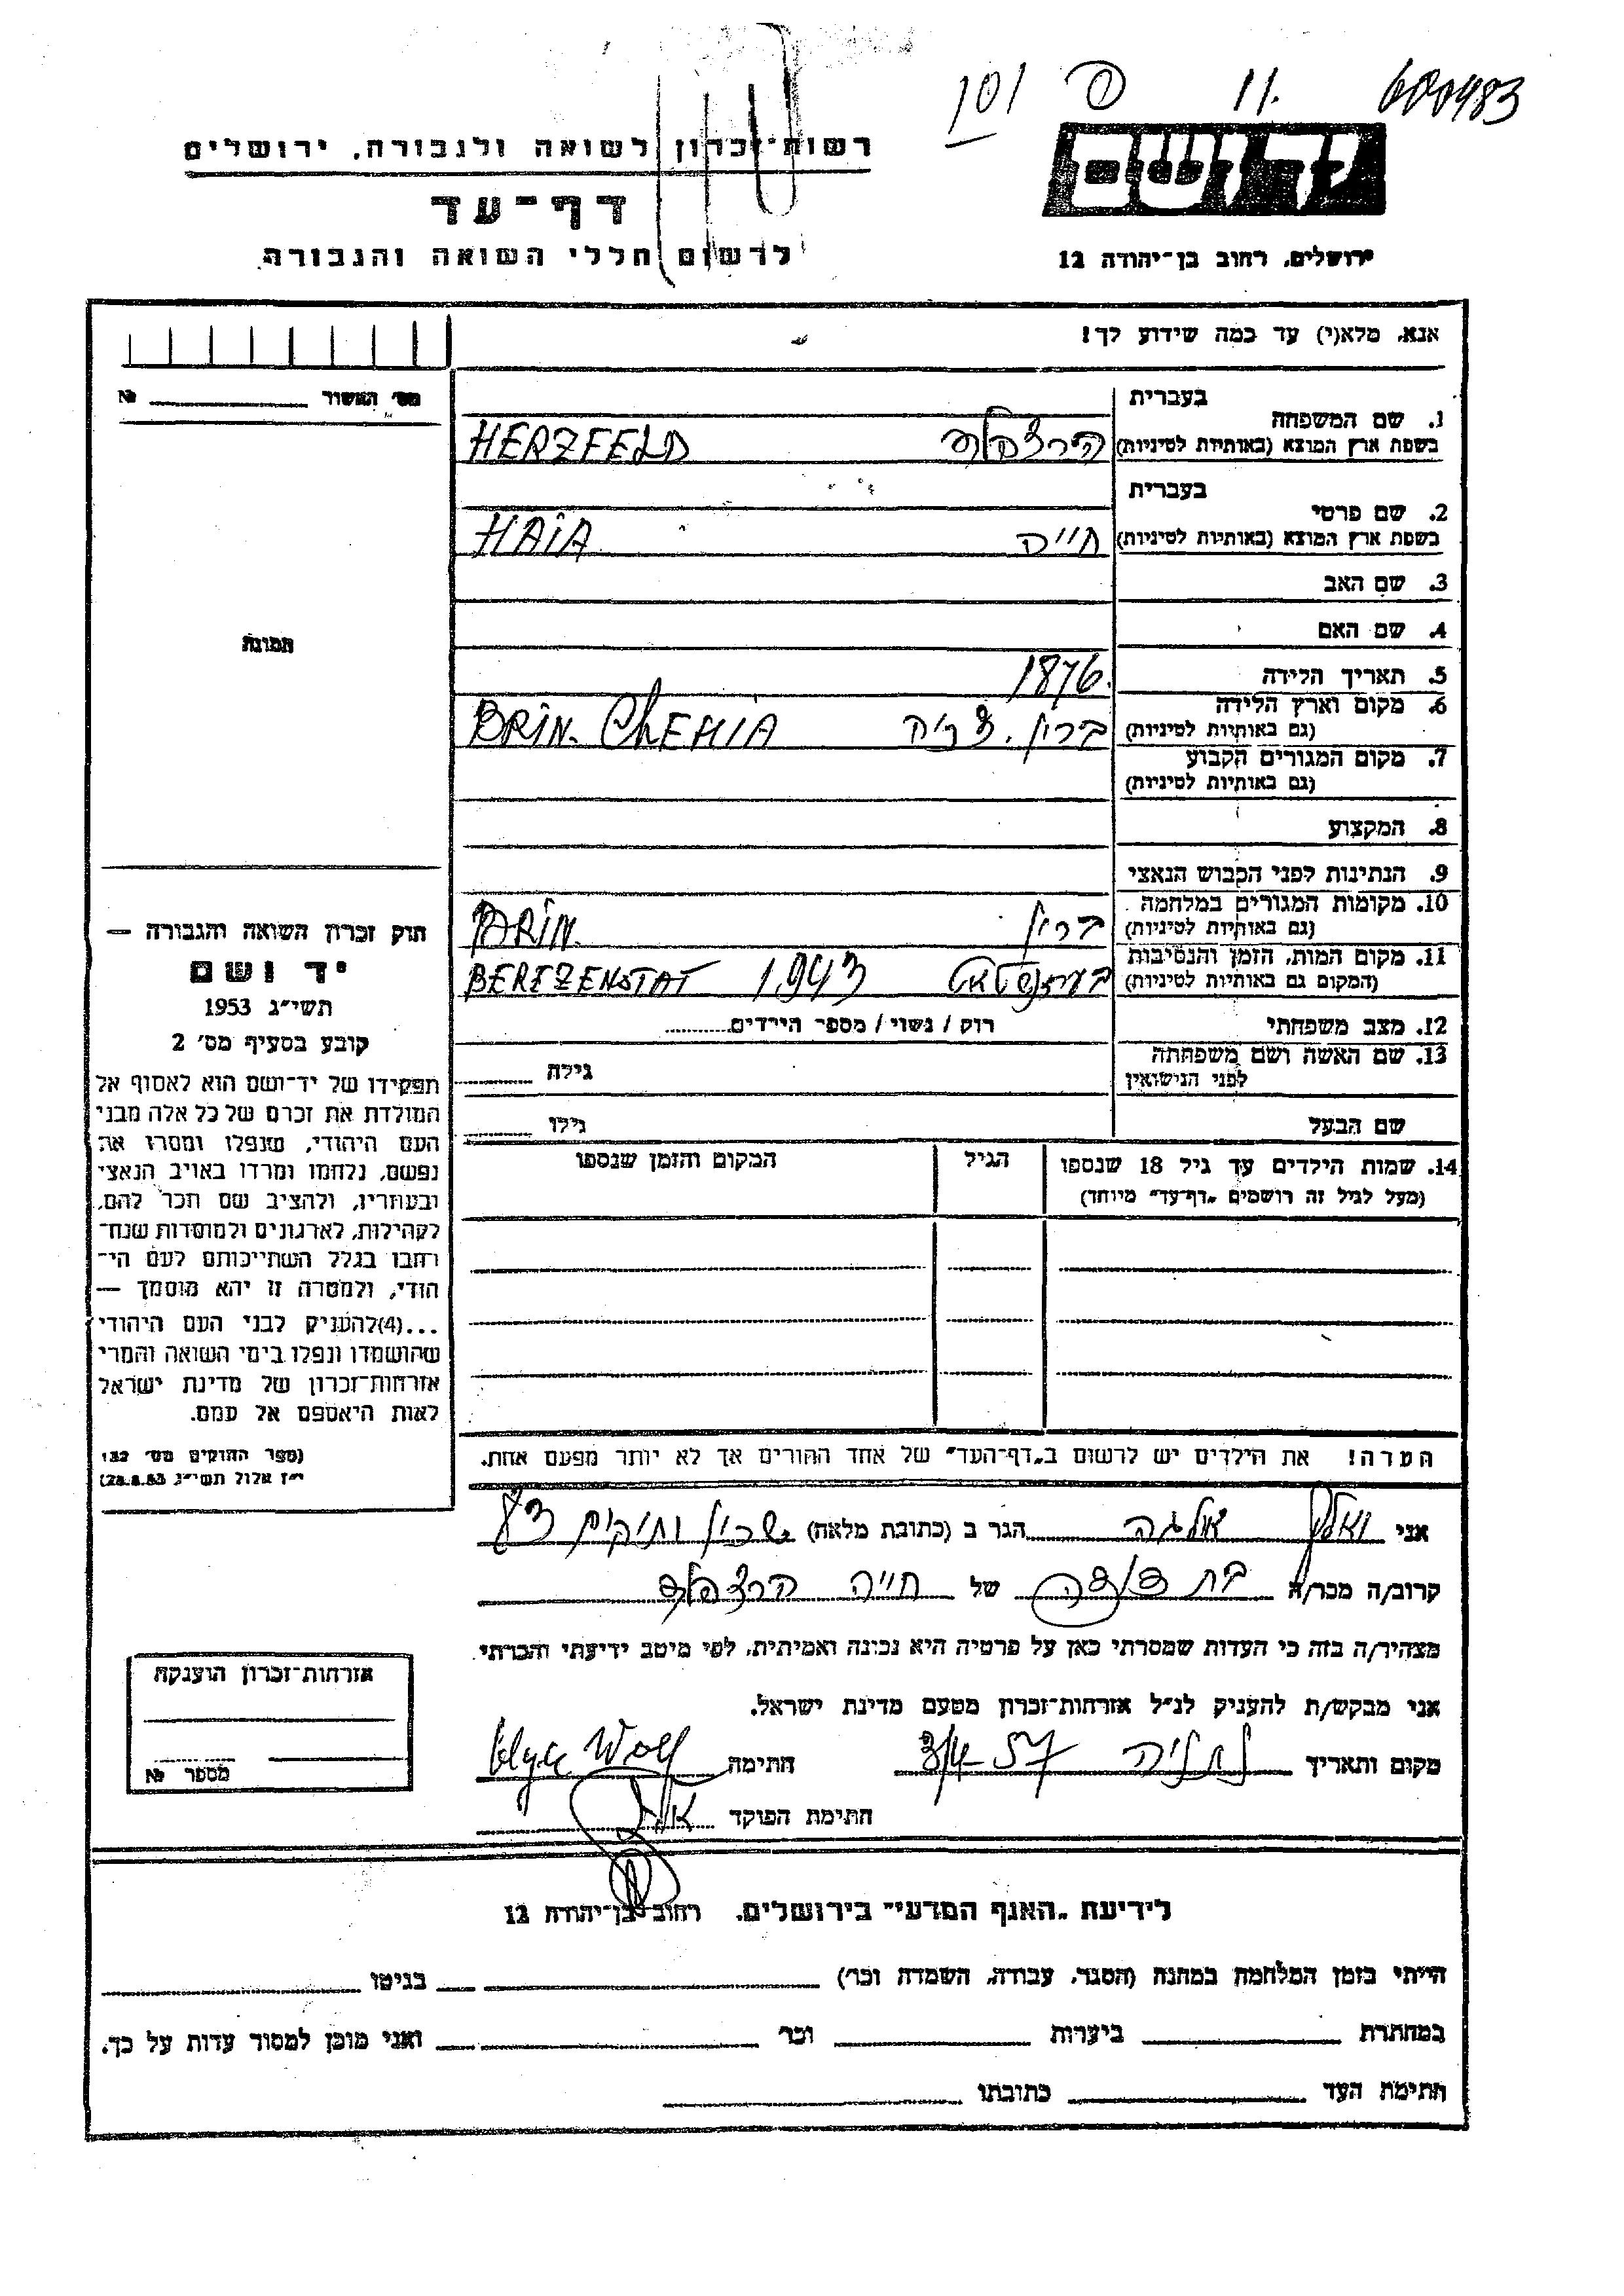 101 ס 11. 600483
יד ושם
רשות־זכרון לשואה ולגבורה, ירושלים
דף־עד
לרשום חללי השואה והגבורה.
ירושלים, רחוב בן־יהודה 12
אנא, מלא(י) עד כמה שידוע לך!
מס' האשור №
1. שם המשפחה בעברית
בשפת ארץ המוצא (באותיות לטיניות) הירצפלד HERZFELD
2. שם פרטי בעברית
בשפת ארץ המוצא (באותיות לטיניות) חייה HAIA
3. שם האב
4. שם האם
תמונה
5. תאריך הלידה 1876.
6. מקום וארץ הלידה
(גם באותיות לטיניות) ברין. BRIN. CHEHIA
7. מקום המגורים הקבוע
(גם באותיות לטיניות)
8. המקצוע
9. הנתינות לפני הכבוש הנאצי
10. מקומות המגורים במלחמה
(גם באותיות לטיניות) ברין BRIN.
11. מקום המות, הזמן והנסיבות
(המקום גם באותיות לטיניות) 1943 BEREZENSTAT
12. מצב משפחתי רוק / נשוי / מספר הירדים
13. שם האשה ושם משפחתה
לפני הנישואין גילה
שם הבעל גילו
14. שמות הילדים עד גיל 18 שנספו הגיל המקום והזמן שנספו
(מעל לגיל זה רושמים „דף־עד" מיוחד)
חוק זכרון השואה והגבורה —
יד ושם
תשי"ג 1953
קובע בסעיף מס' 2
תפקידו של יד־ושם הוא לאסוף אל
המולדת את זכרם של כל אלה מבני
העם היהודי, שנפלו ומסרו את
נפשם, נלחמו ומרדו באויב הנאצי
ובעוזריו, ולהציב שם וזכר להם,
לקהילות, לארגונים ולמוסדות שנח־
רחבו בגלל השתייכותם לעם הי־
הודי, ולמטרה זו יהא מוסמך —
...(4)להעניק לבני העם היהודי
שהושמדו ונפלו בימי השואה והמרי
אזרחות־זכרון של מדינת ישראל
לאות היאספם אל עמם.
(ספר החוקים מס' 132
י"ז אלול תשי"ג, 28.8.53)
הערה! את הילדים יש לרשום ב„דף־העד" של אחד ההורים אך לא יותר מפעם אחת.
אני וולף אולגה הגר ב (כתובת מלאה) שכון ותיקים
קרוב/ה מכר/ה בת דודה של חייה הרצפלד
מצהיר/ה בזה כי העדות שמסרתי כאן על פרטיה היא נכונה ואמיתית, לפי מיטב ידיעתי והכרתי.
אני מבקש/ת להעניק לנ"ל אזרחות־זכרון מטעם מדינת ישראל.
מקום ותאריך נתניה 3/4 57 חתימה Olga Wolf
חתימת הפוקד
אזרחות־זכרון הוענקה
מספר №
לידיעת „האגף המדעי" בירושלים, רחוב בן־יהודה 12
הייתי בזמן המלחמה במחנה (הסגר, עבודה, השמדה וכו') בגיטו
במחתרת ביערות וכו' ואני מוכן למסור עדות על כך.
חתימת העד כתובתו